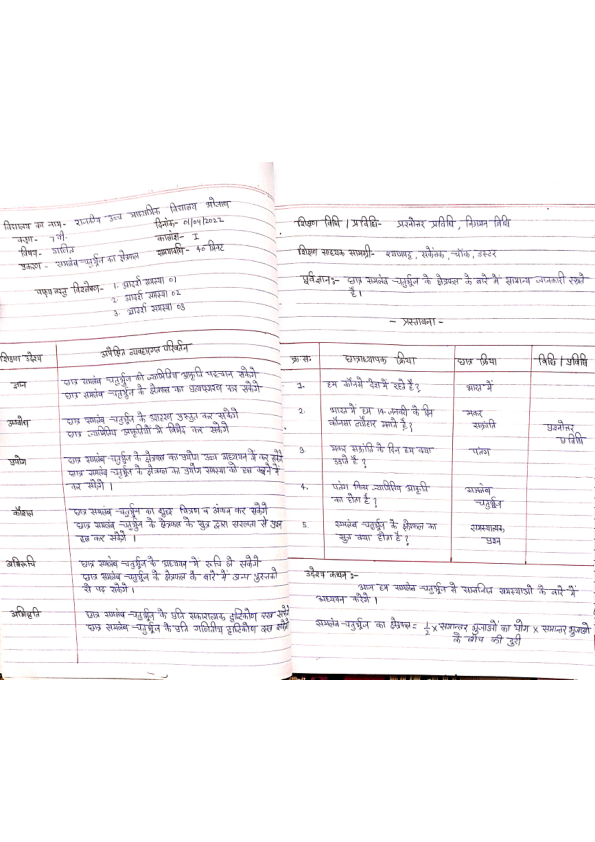 विद्यालय का नाम- राजकीय उच्च माध्यमिक विद्यालय
कक्षा- 7 वी. दिनांक- 01/04/2022
विषय- गणित कालांश- I
प्रकरण- समलंब चतुर्भुज का क्षेत्रफल समयावधि- 40 मिनट
पाठ्यवस्तु विश्लेषण- 1. आदर्श समस्या 01
2. आदर्श समस्या 02
3. आदर्श समस्या 03
शिक्षण उद्देश्य अपेक्षित व्यवहारगत परिवर्तन
ज्ञान छात्र समलंब चतुर्भुज की ज्यामितिय आकृति पहचान सकेंगे
छात्र समलंब चतुर्भुज के क्षेत्रफल का प्रत्यास्मरण कर सकेंगे
अवबोध छात्र समलंब चतुर्भुज के उदाहरण प्रस्तुत कर सकेंगे
छात्र ज्यामितिय आकृतियों में विभेद कर सकेंगे
उपयोग छात्र समलंब चतुर्भुज के क्षेत्रफल का उपयोग उच्च अध्ययन में कर सकेंगे
छात्र समलंब चतुर्भुज के क्षेत्रफल का उपयोग समस्या को हल करने में
कर सकेंगे ।
कौशल छात्र समलंब चतुर्भुज का शुद्ध चित्रण व अंकन कर सकेंगे
छात्र समलंब चतुर्भुज के क्षेत्रफल के सूत्र द्वारा सरलता से प्रश्न
हल कर सकेंगे ।
अभिरूचि छात्र समलंब चतुर्भुज के अध्ययन में रूचि ले सकेंगे
छात्र समलंब चतुर्भुज के क्षेत्रफल के बारे में अन्य पुस्तकों
से पढ़ सकेंगे ।
अभिवृति छात्र समलंब चतुर्भुज के प्रति सकारात्मक दृष्टिकोण रख सकेंगे
छात्र समलंब चतुर्भुज के प्रति गणितीय दृष्टिकोण रख सकेंगे
शिक्षण विधि / प्रविधि- प्रश्नोत्तर प्रविधि, निगमन विधि
शिक्षण सहायक सामग्री- श्यामपट्ट, संकेतक, चॉक, डस्टर
पूर्वज्ञान:- छात्र समलंब चतुर्भुज के क्षेत्रफल के बारे में सामान्य जानकारी रखते
है ।
- प्रस्तावना -
क्र.सं. छात्राध्यापक क्रिया छात्र क्रिया विधि / प्रविधि
1. हम कौनसे देश में रहते है ? भारत में
2. भारत में हम 14 जनवरी के दिन मकर
कौनसा त्यौहार मनाते है ? सक्रांति प्रश्नोत्तर
प्रविधि
3. मकर सक्रांति के दिन हम क्या पतंग
उड़ाते है ?
4. पतंग किस ज्यामितिय आकृति समलंब
का होता है ? चतुर्भुज
5. समलंब चतुर्भुज के क्षेत्रफल का समस्यात्मक
सूत्र क्या होता है ? प्रश्न
उद्देश्य कथन :-
आज हम समलंब चतुर्भुज से सम्बन्धित समस्याओं के बारे में
अध्ययन करेंगे ।
समलंब चतुर्भुज का क्षेत्रफल = 1/2 x समान्तर भुजाओं का योग x समान्तर भुजाओं
के बीच की दूरी